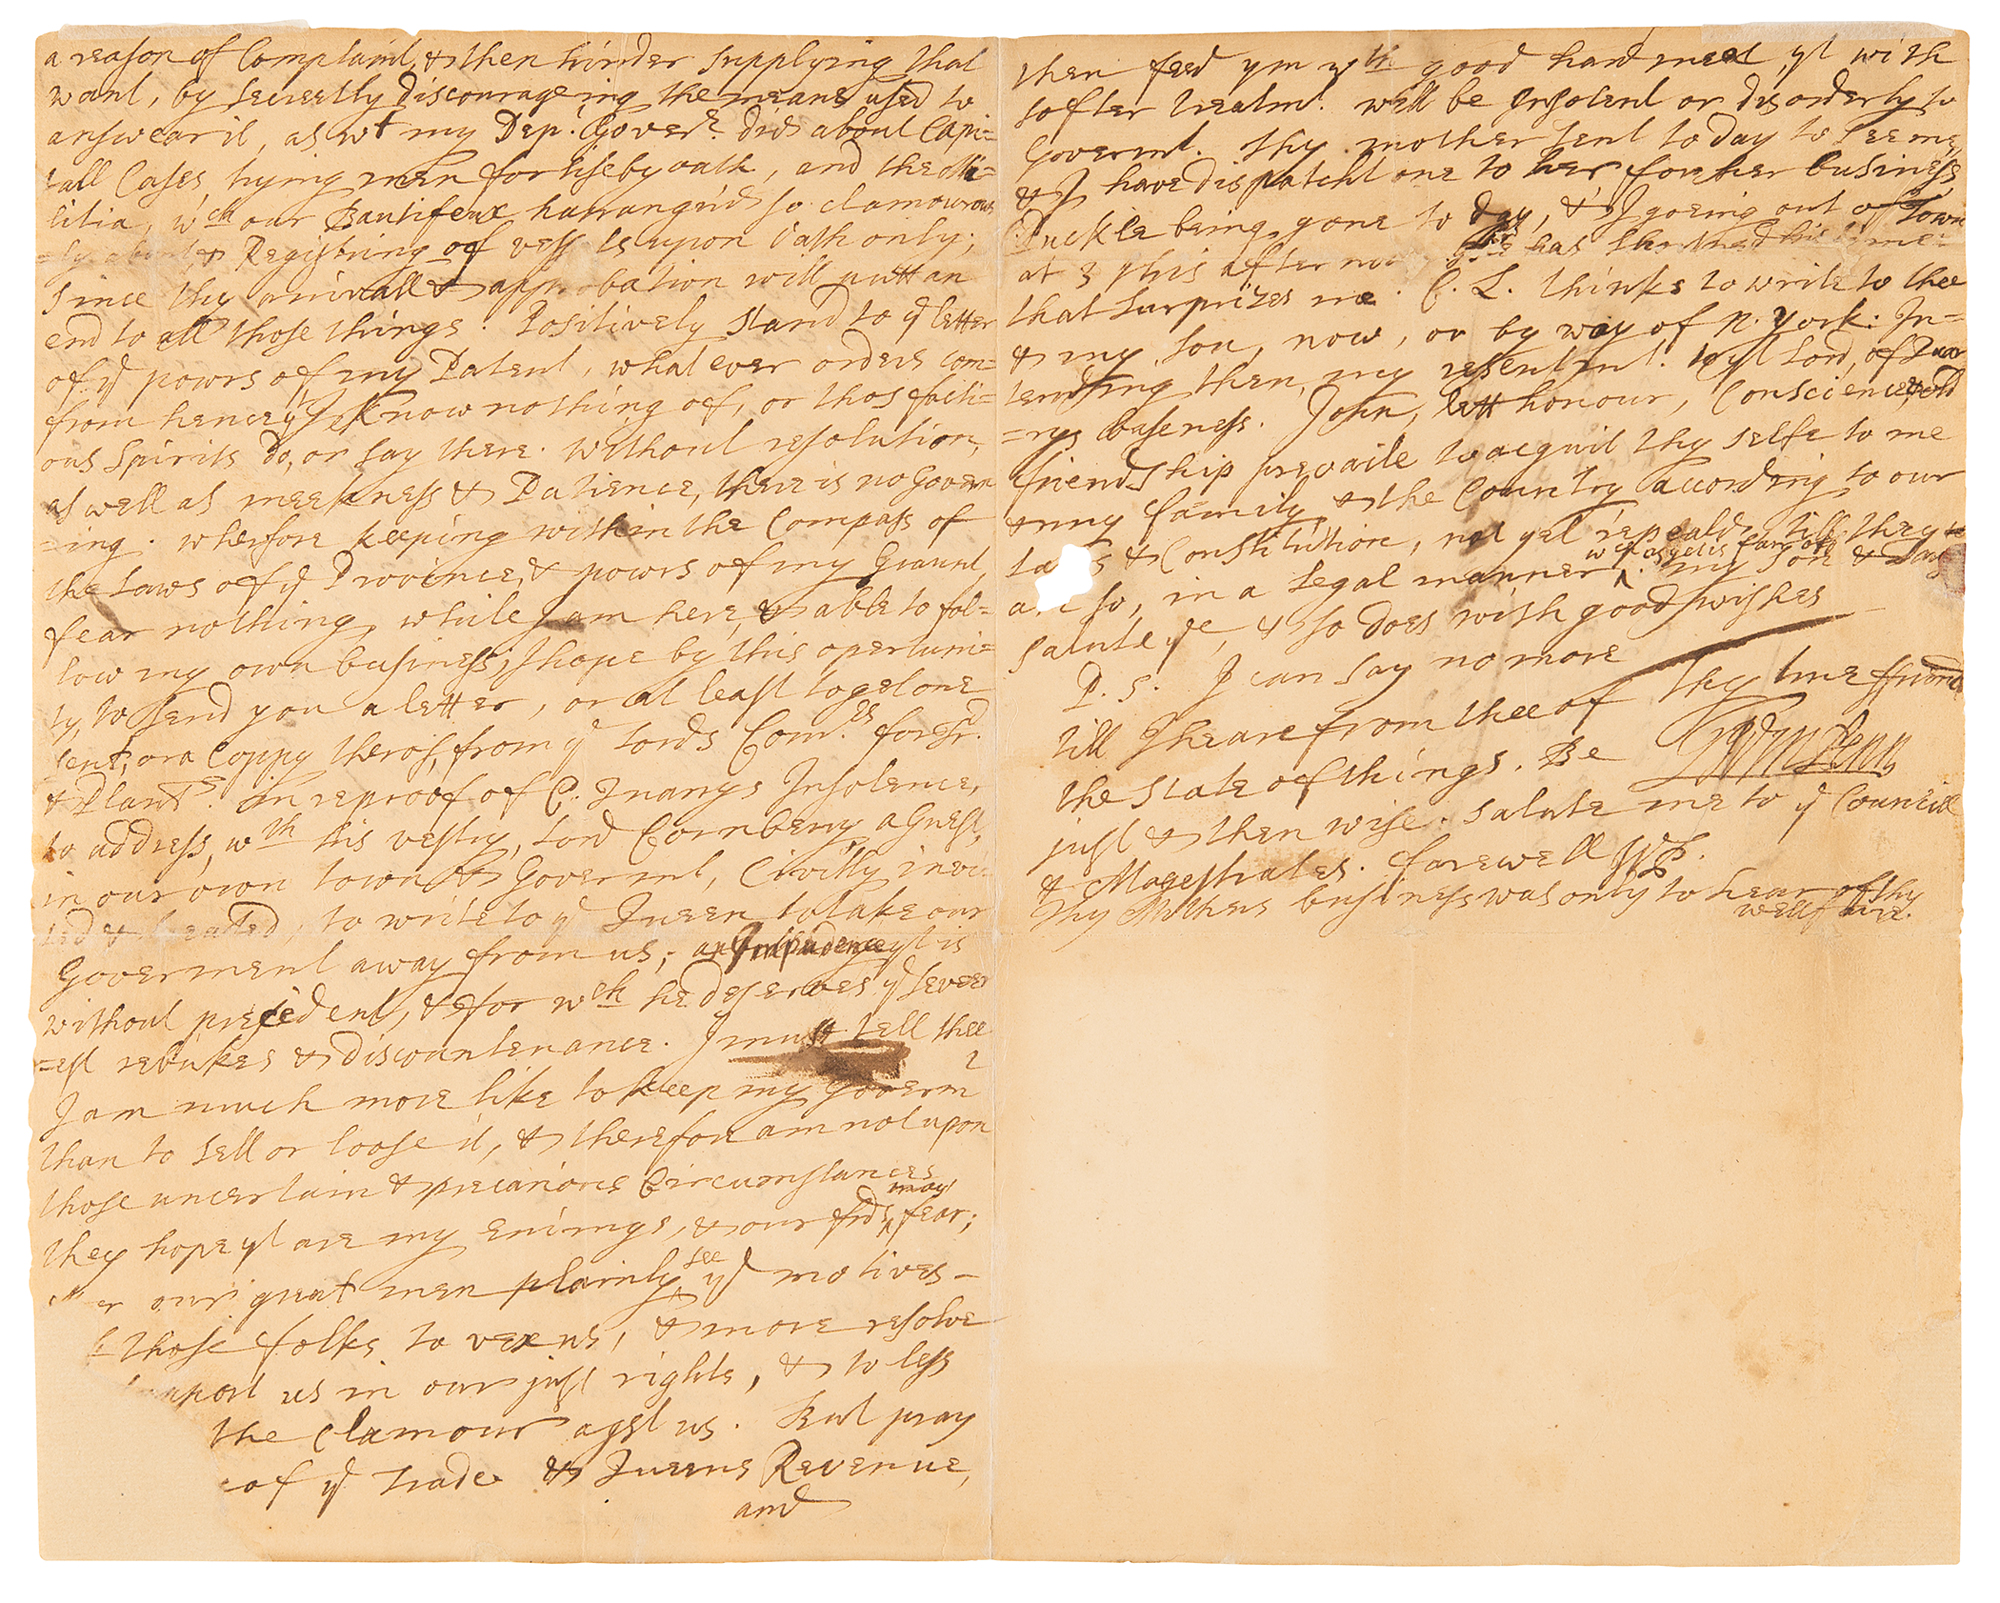 a reason of Complaint, & then hinder supplying that
want, by secrettly discourageing the means used to
answear it, as wt my Dep.t Gover.r did about Capi=
tall Cases, trying men for life by oath, and the Mi=
litia, wch our Bautifeux harrangu'd so clamourous
=ly about, & Registring of vessls upon Oath only;
since thy arrivall & approbation will putt an
end to all those things. Positively stand to ye letter
of ye powrs of my Patent, whatever orders com=
from hence yt I know nothing of, or thos facti=
ous Spirits do, or say there. Without resolution,
as well as meekness & Patience, there is no Govern
=ing. wherfore keeping within the Compass of
the Laws of ye Province, & powrs of my Graunt,
fear nothing, while I am here, & able to fol=
low my own business; I hope by this opertuni=
ty, to send you a letter, or at least to get one
sent, or a Coppy therof, from ye Lords Com.rs for Tr.d
& Plant.s in reproof of C. Quarys Insolence,
to address, wth his vestry, Lord Cornbery, a Guest,
in our own town & Governmt, Civilly invi
ted & treated, to write to ye Queen to take our
Goverment away from us; an Impudence yt is
without precedent, & for wch he deserves ye sever
=est rebukes & discountenance. I must tell thee
I am much more like to keep my Governmt
than to sell or loose it, & therefore am not upon
those uncertain & precarious Circumstances
they hope yt are my enimys, & our frds may fear;
our great men plainly see ye motives
those folks to vex us, & more resolve
support us in our just rights, & to less
the Clamour agst us. But pray
of ye Trade & Queens Revenue,
and
then feed ym wth good hard meat, yt with
softer treatmt. will be Insolent or disorderly to
Govermt. thy mother sent to day to see me,
& I have dispatcht one to her for her business,
Puckle being gone to day, & I goeing out of Town
at 3 this afternoon has shortned his time
that surprizes me. C. L. thinks to write to thee
& my son, now, or by way of N. York: In=
tending then, my resentmt. to yt Lord, of Quar
=rys baseness. John, lett honour, Conscience, & old
friendship prevaile to acquit thy selfe to me
& my family & the Country according to our
Laws & Constitution, not yet repeald, till they
are so, in a legal manner, wch as yet is farr off. my son & Dau
salute ye, & so does with good wishes
P. S. I can say no more
thy true ffriend
till I heare from thee of
Wm Penn
the State of things. Be
just & then wise. salute me to ye Councill
& Magestrates. farewell WP.
Thy Mothers business was only to hear of thy
wellfare.